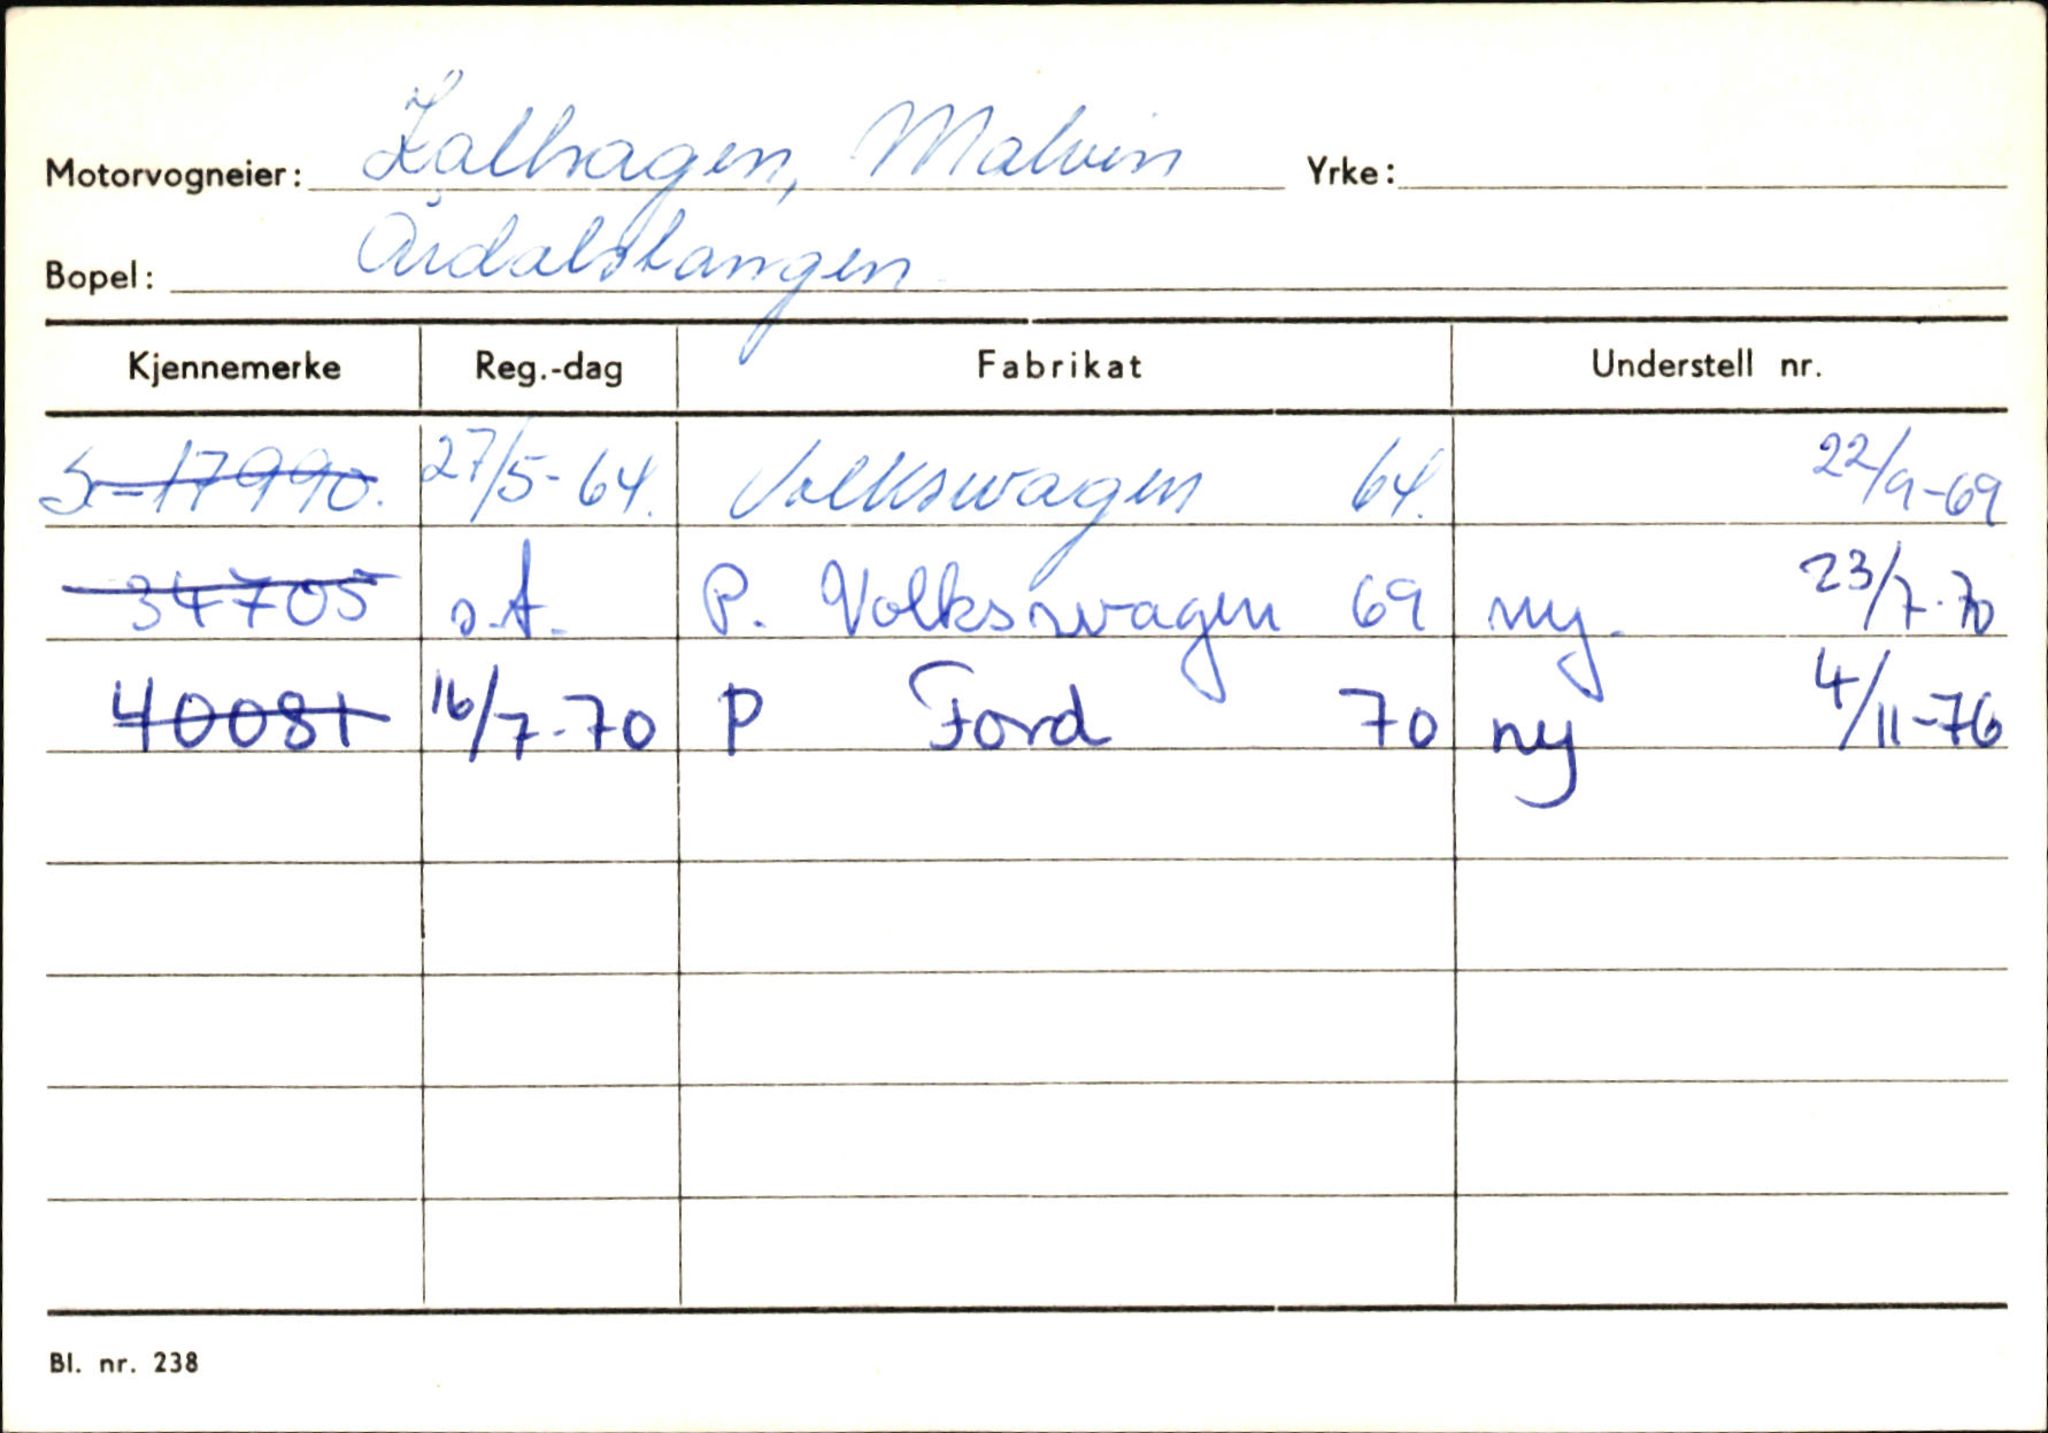 Motorvogneier: Zalhagen, Malvin Yrke:
Bopel: Årdalstangen
Kjennemerke Reg.-dag Fabrikat Understell nr.
S-17990. 27/5-64. Volkswagen 64. 22/9-69
34705 s.d. P. Volkswagen 69 ny. 23/7-70
40081 16/7-70 P Ford 70 ny 4/11-76
Bl. nr. 238